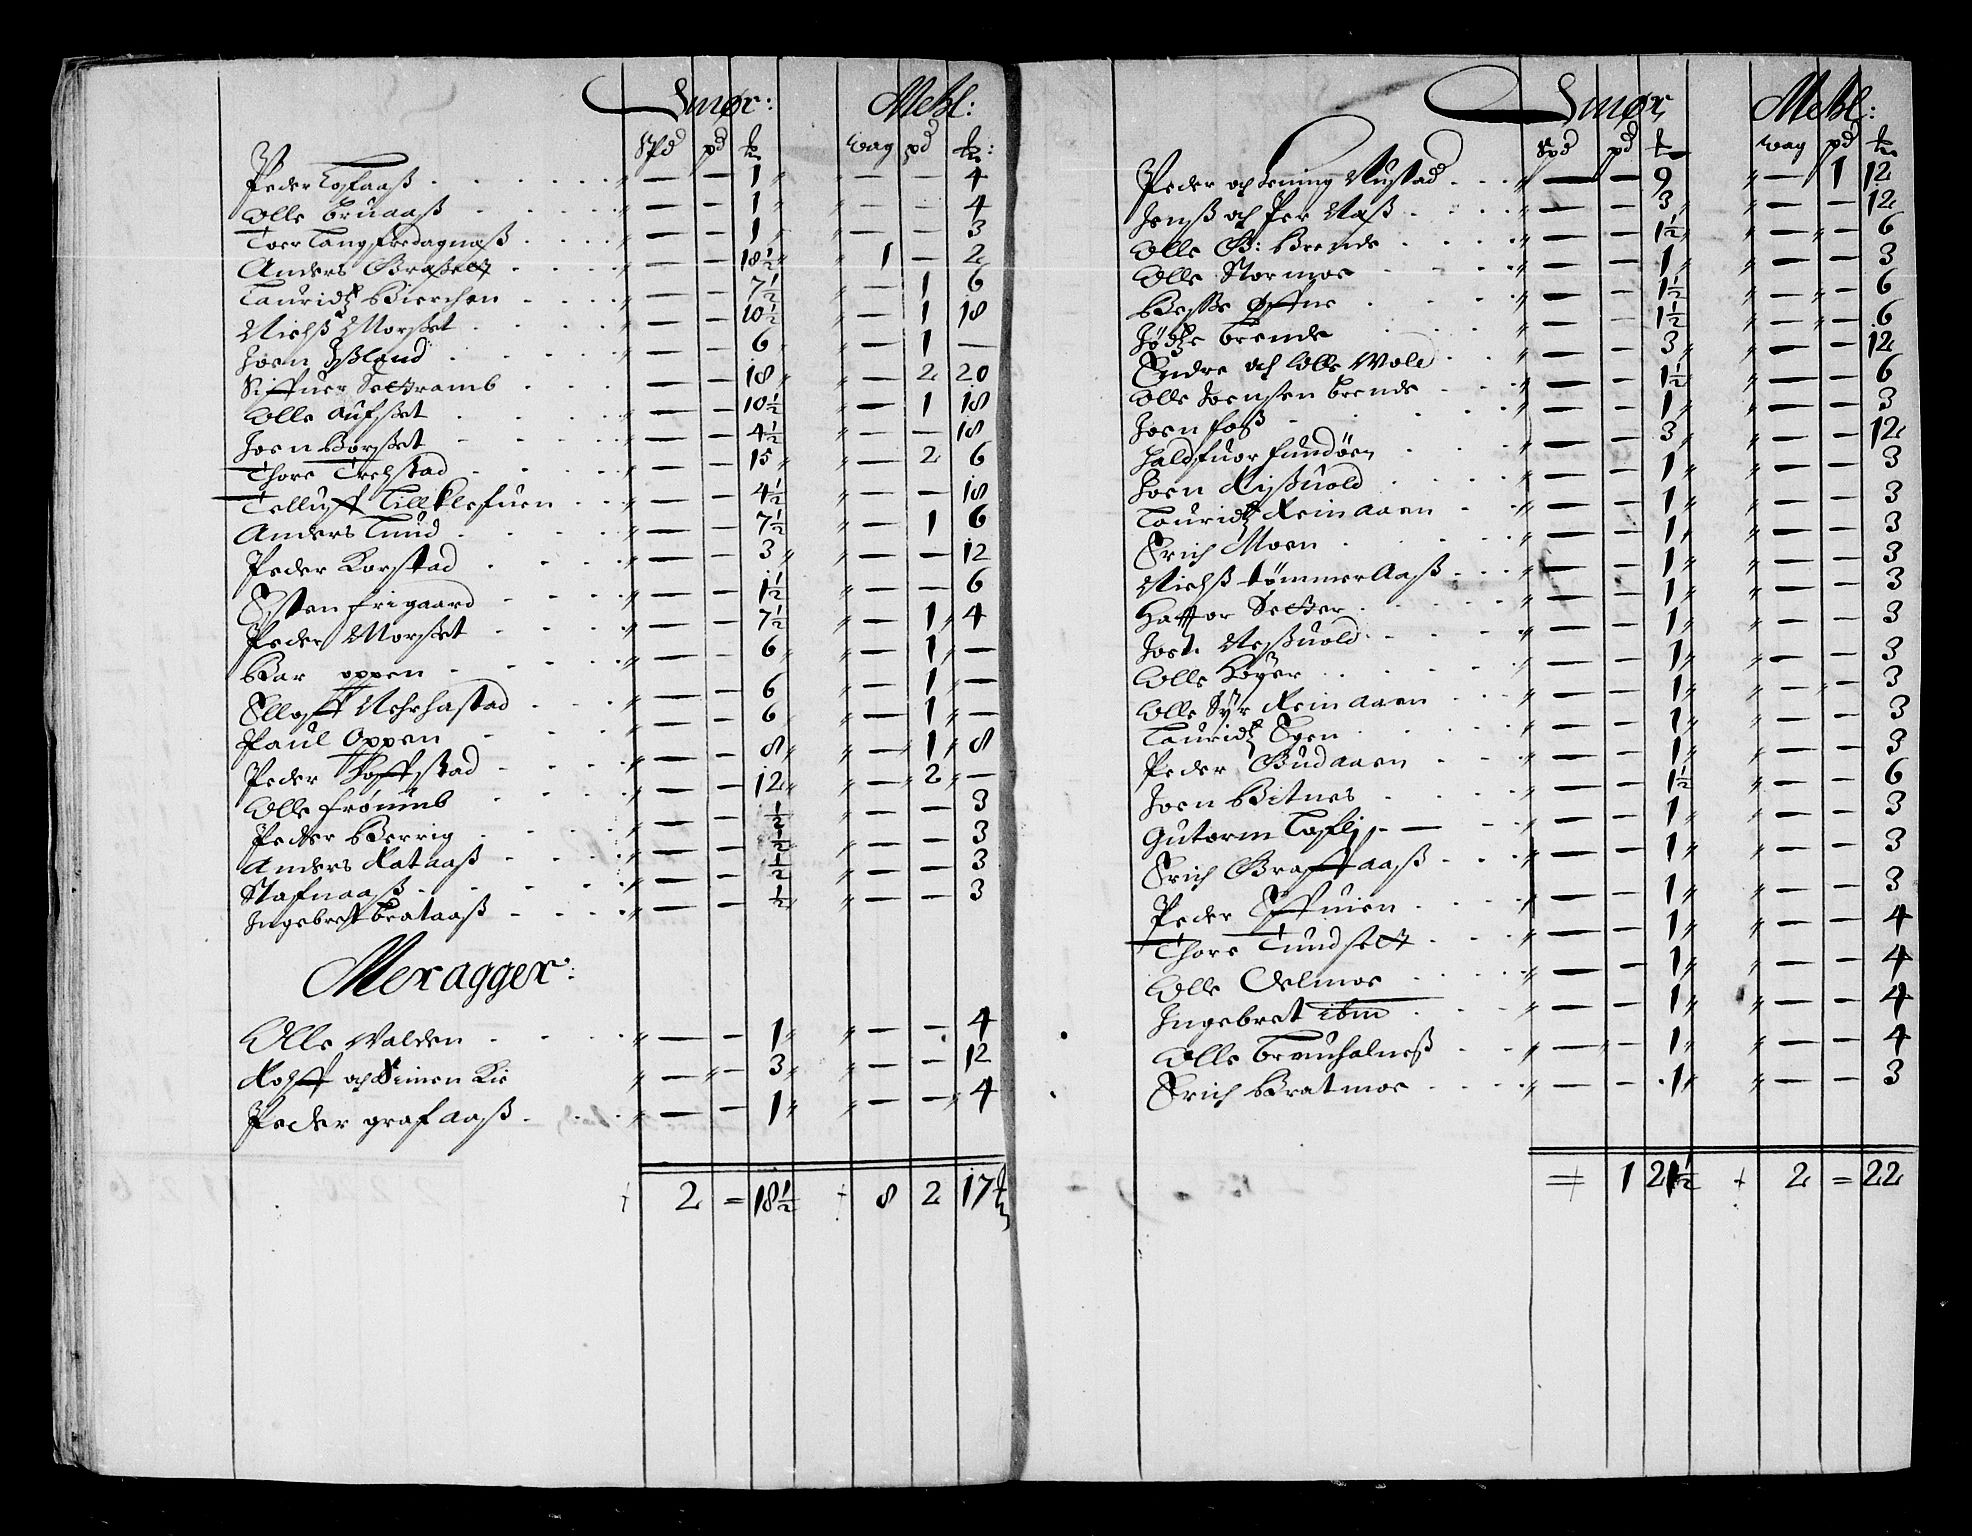 Smør: Mehl:
Spd pd ℔ wag pd ℔:
Peder Tofaaß . . . . . . „ — — 1 „ „ — — 4
Olle Bruaaß . . . . . „ — — 1 „ „ — — 4
Toer Langfredagnaß . . . . „ — — 1 „ „ — — 3
Anders Graßelt . . . . „ — — 18½ „ „ 1 — 2
Lauridtz Bierchen . . . . „ — — 7½ „ — 1 6
Nielß Morßet . . . . „ — — 10½ „ — 1 18
Joen Ißland . . . . „ — — 6 „ — 1 —
Siffuer Settramb . . . „ — — 18 „ „ — 2 20
Olle Aufset . . . . „ — — 10½ „ — 1 18
Joen Borßet . . . . „ — — 4½ „ — — 18
Thore Trehstad . . . . „ — — 15 „ „ — 2 6
Telluff Lillklefuen . . „ — — 4½ „ — — 18
Anders Lund . . . . „ — — 7½ „ — 1 6
Peder Korstad . . . . „ — — 3 „ „ — — 12
Esten frigaard . . . . „ — — 1½ „ — — 6
Peder Morßet . . . . „ — — 7½ „ — 1 „ 4
Bar oppen . . . . „ — — 6 „ „ — 1 „ —
Elloff Rehrhastad . . . . „ — — 6 „ — 1 „ —
Paul Oppen . . . . „ — — 6 „ — 1 „ —
Peder Hoffstad . . . . „ — — 8 „ „ — „ 1 „ 8
Olle frönimb . . . . „ — — 12 „ „ — „ 2 „ —
Peder Berrig . . . . „ — — ½ „ — — 3
Anders Rataaß . . . . „ — — ½ „ — — 3
Stafnaaß . . . . . „ — — ½ „ — — 3
Ingebret Brataaß . . . . „ — — ½ „ „ — — 3
Meragger:
Olle Walden . . . . „ — — 1 „ „ — — 4
Rolff och Simen Kie „ — „ — 3 „ „ — — 12
Peder grafaaß . . . . „ — — 1 „ „ — — „ 4
2 = 18½ 8 2 17 ℔
Smør Mehl:
Spd pd ℔ wag pd ℔
Peder och Lening Rustad . . . „ — — 9 „ — 1 12
Jenß och Per Naß . . . . „ — — 3 „ „ — — 12
Olle G: Brende . . . . „ — — 1½ „ „ — „ — 6
Olle Stormoe . . . . „ — — 1 „ „ — — 3
Beßße Öffne . . . . „ — — 1½ „ — „ — 6
Jödtze Brende . . . . „ — — 1½ „ — „ — 6
Endre och Olle Wold . . . „ — — 3 „ „ — — 12
Olle Joensen Brende . . . „ — — 1½ „ — — 6
Joen foß . . . . „ — — 1 „ „ — — 3
Haldfuor fundöen . . . „ — — 3 „ „ — — 12
Joen Rißuold . . . . „ — — 1 „ „ — — 3
Lauridtz Reinaaen . . . „ — — 1 „ „ — — 3
Erich Moen . . . . „ — — 1 „ „ — — 3
Nielß tömmeraaß . . . „ — — 1 „ „ — — 3
Haffor Setter . . . . . „ — — 1 „ „ — — 3
Jost. Neßuold . . . . „ — — 1 „ „ — — 3
Olle Höyer . . . . „ — — 1 „ „ — — 3
Olle Syr Reinaaen . . . „ — — 1 „ „ — „ — 3
Lauridtz Egen . . . . „ — — 1 „ „ — — 3
Peder Budaaen . . . „ — — 1 „ „ — — 3
Joen Bitnes . . . . „ — — 1½ „ — — 6
Gutorm Lofli . — . . . „ — — 1 „ „ — — 3
Erich Graffaaß . . . „ — — 1 „ „ — — 3
Peder Effuien . . . . „ — — 1 „ „ — — 3
Thore Tundsett . . . . „ — — 1 „ „ — — 4
Olle Oelmoe . . . . „ — — 1 „ „ — — 4
Ingebret ibm . . . . „ — — 1 „ „ — — 4
Olle Brenhalneß . . . „ — „ — 1 „ „ — — 4
Erich Bratmoe . . . . „ — — 1 „ „ — — 3
= 1 21½ 2 = 22